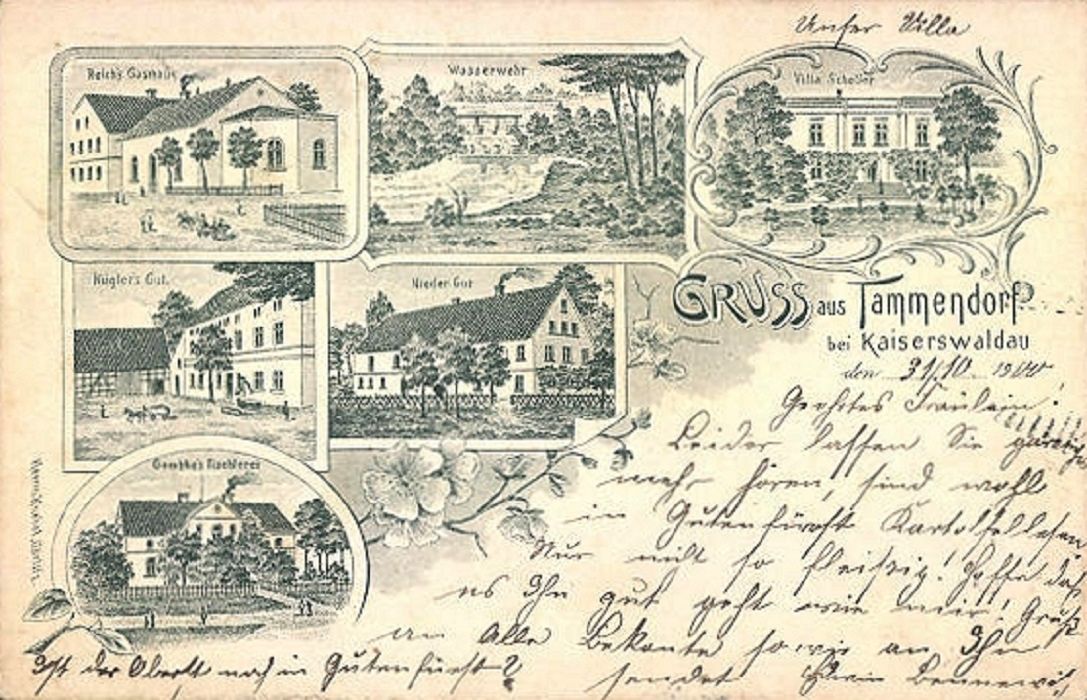 Unser Villa
Reich's Gasthaus
Wasserwehr
Villa Scholler
Kugler's Gut.
Nieder Gut
GRUSS aus Tammendorf
bei Kaiserswaldau
den 31/10 1900
Geehrtes Fräulein!
Leider lassen Sie garnichts
mehr hören, sind wohl
in Gutenfürst Kartoffellesen
Nur nicht so fleißig! Hoffe daß
es Ihn gut geht wie mir! Gruß
an Alle Bekante sowie an Ihn
sendet
Tischlerei
Ist der Obertt noch in Gutenfürst?